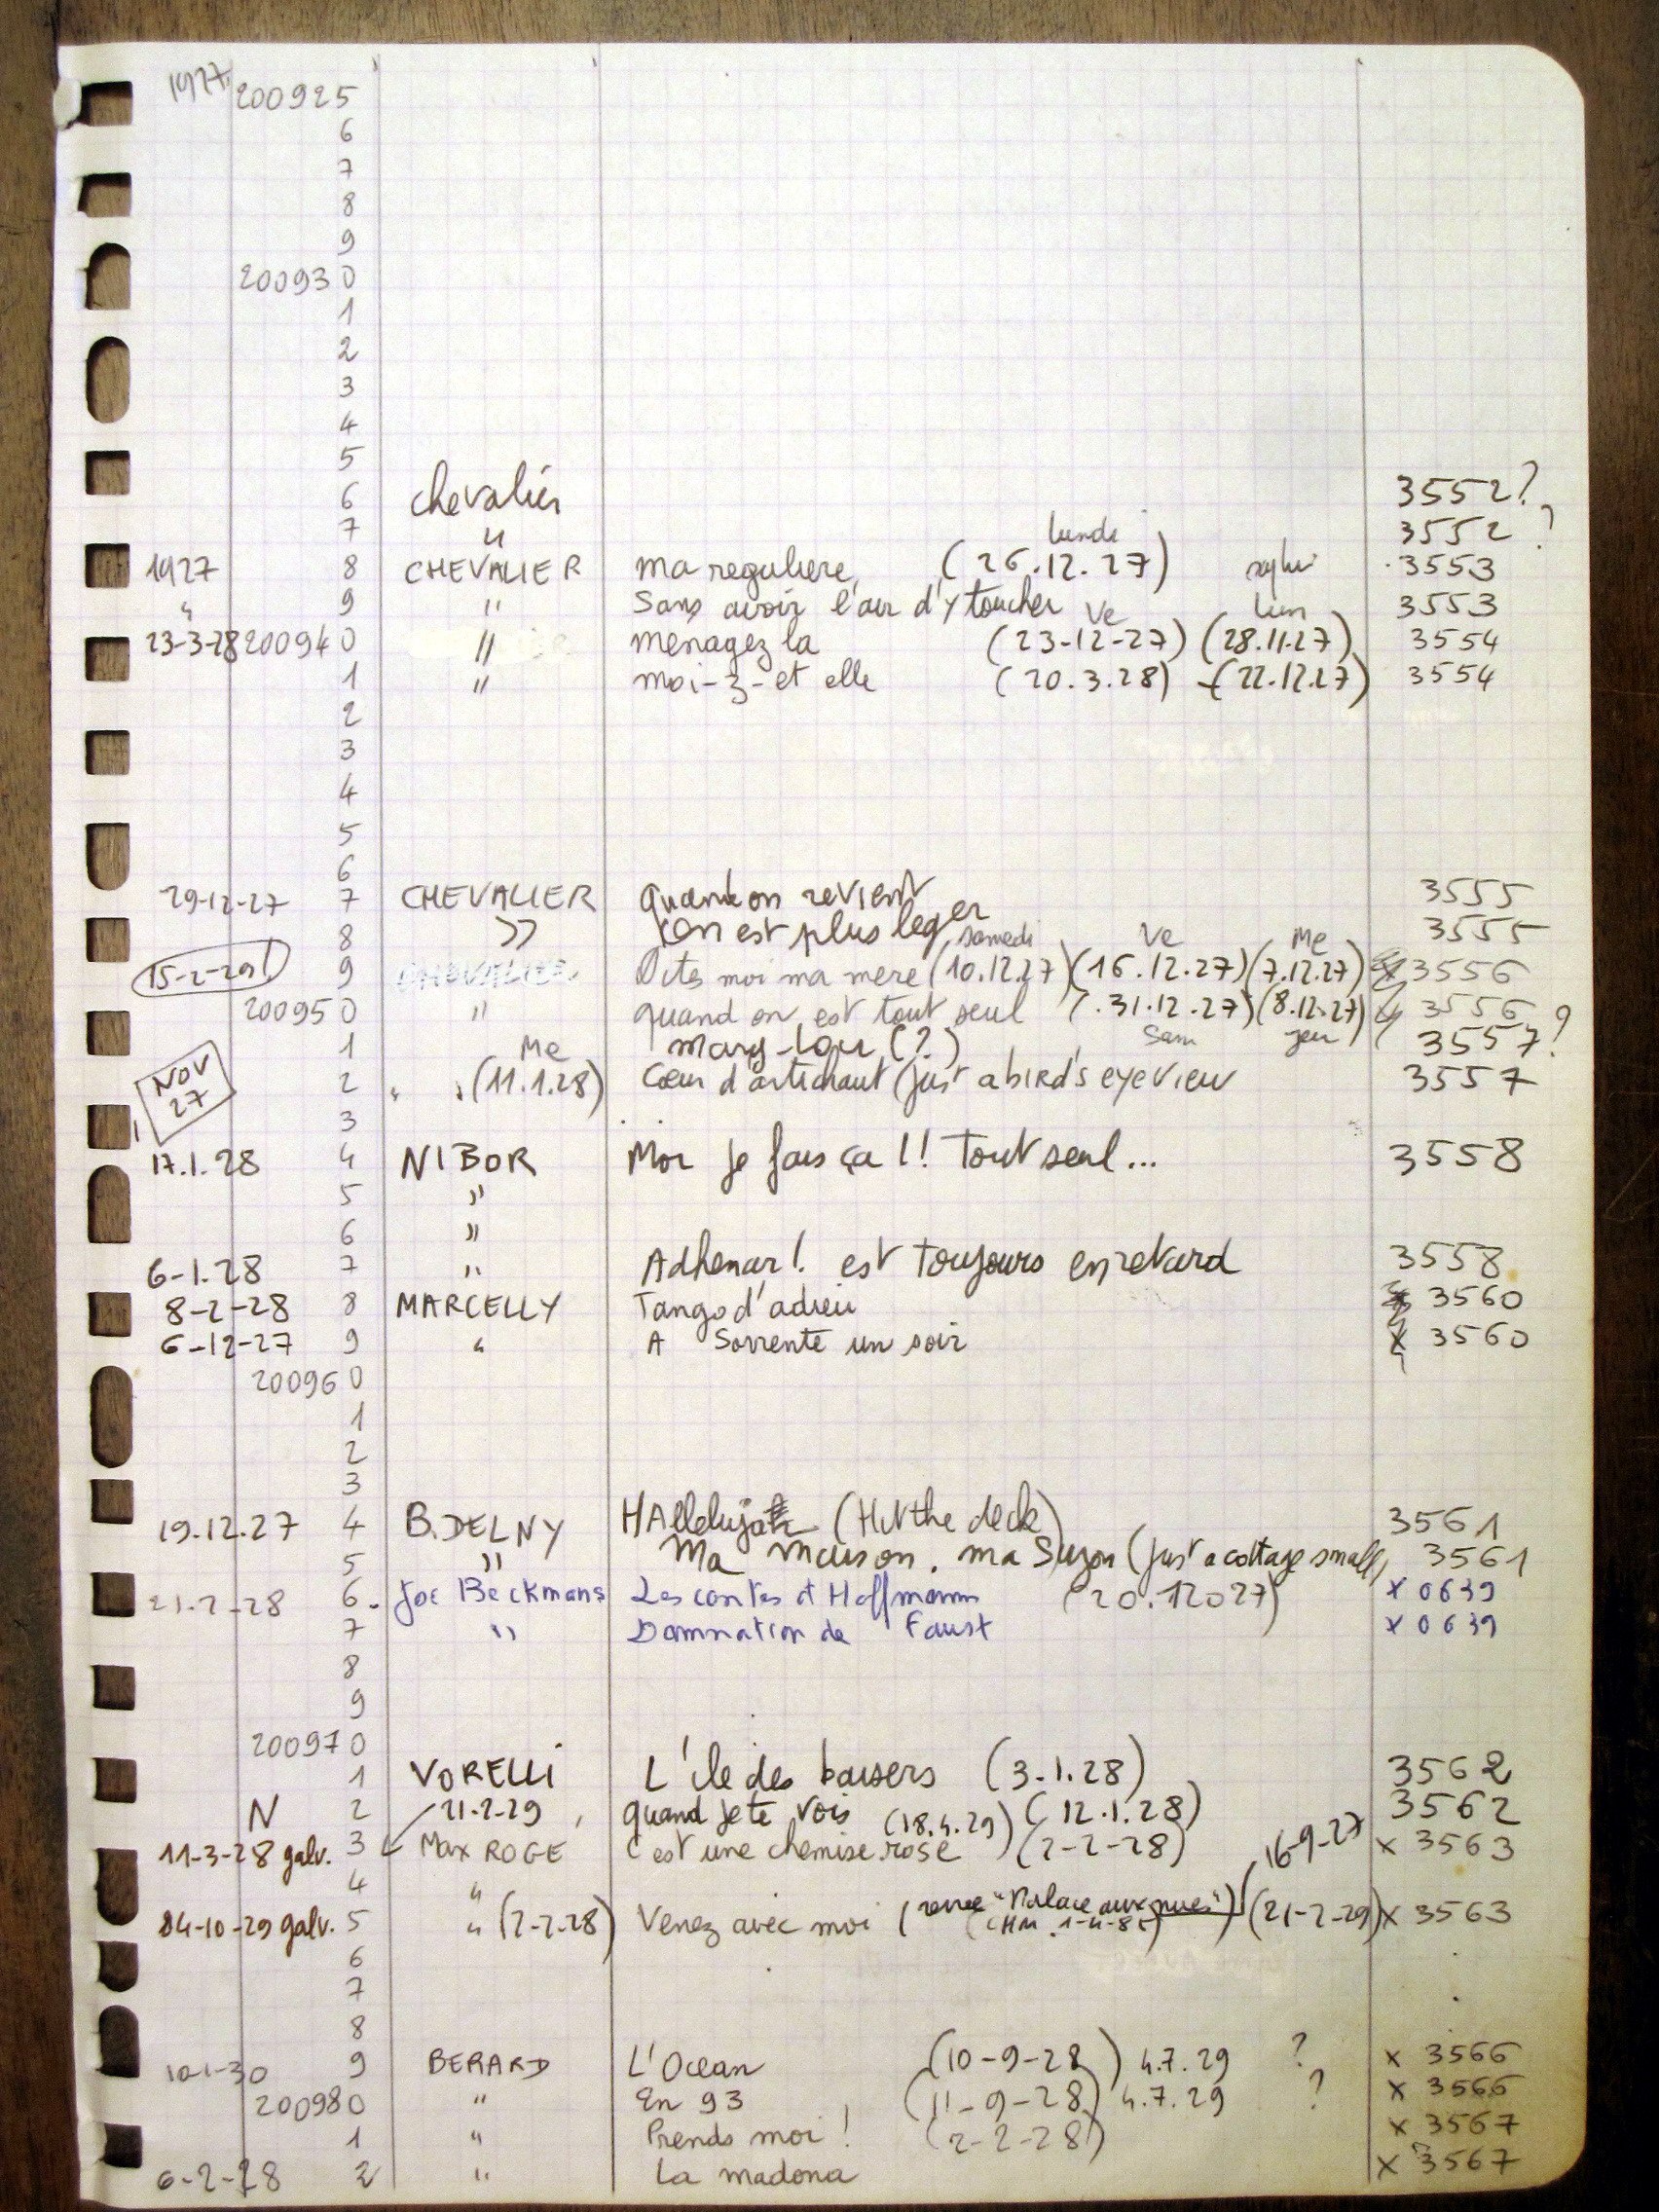 1927 200925
6
7
8
9
200930
1
2
3
4
5
6 Chevalier 3552?
7 " 3552 ?
lundi
1927 8 CHEVALIER ma reguliere (26.12.27) 3553
" 9 " Sans avoir l'air d'y toucher 3553
Ve lun
23-3-28 200940 " menagez la (23-12-27) (28.11.27) 3554
1 " moi-z-et elle (20.3.28) (22.12.27) 3554
2
3
4
5
6
29-12-27 7 CHEVALIER Quand on revient 3555
8 " on est plus leger 3555
samedi Ve Me
15-2-29! 9 CHEVALIER Dites moi ma mere (10.12.27) (16.12.27) (7.12.27) 3556
200950 " quand on est tout seul (.31.12.27) (8.12.27) 3556
Sam jeu
1 mary-lou (?) 3557?
Me
NOV 27 2 " (11.1.28) Cœur d'artichaut (just a bird's eye view 3557
3
17.1.28 4 NIBOR Moi je fais ça !! Tout seul... 3558
5 "
6 "
6-1.28 7 " Adhemar! est toujours en retard 3558
8-2-28 8 MARCELLY Tango d'adieu 3560
6-12-27 9 " A Sorrente un soir x 3560
200960
1
2
3
19.12.27 4 B.DELNY HAllelujah (Hit the deck) 3561
5 " Ma maison, ma Suzon (just a cottage small) 3561
21.2-28 6 Joe Beckmans Les contes d Hoffmann (20.12027) x 0639
7 " Damnation de Faust x 0639
8
9
200970
1 VORELLI L'ile des baisers (3-1.28) 3562
N 2 21-2-29 quand je te vois (12.1.28) 3562
11-3-28 galv. 3 Max ROGE C'est une chemise rose (18.4.29) (2-2-28) x 3563
4 " 16-9-27
04-10-29 galv. 5 " (2-2-28) Venez avec moi (revue "Palace aux nues") (21-2-29) x 3563
(CHM 1-4-85)
6
7
8
10-1-30 9 BERARD L'Ocean (10-9-28) 4.7.29 ? x 3566
200980 " En 93 (11-9-28) 4.7.29 ? x 3566
1 " Prends moi! (2-2-28) x 3567
6-2-28 2 " La madona x 3567